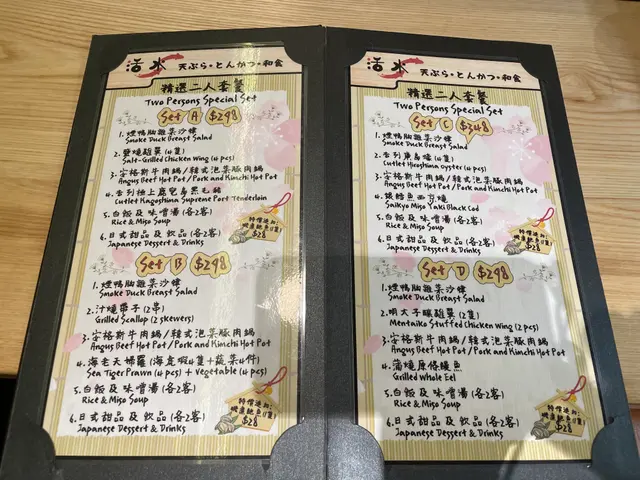 活水
天ぷら・とんかつ・和食
精選二人套餐
Two Persons Special Set
Set A $298
1. 煙鴨胸雜菜沙律
Smoke Duck Breast Salad
2. 鹽燒雞翼 (4隻)
Salt-Grilled Chicken Wing (4 pcs)
3. 安格斯牛肉鍋/韓式泡菜豚肉鍋
Angus Beef Hot Pot / Pork and Kimchi Hot Pot
4. 吉列極上鹿兒島黑毛豬
Cutlet Kagoshima Supreme Pork Tenderloin
5. 白飯及味噌湯 (各2客)
Rice & Miso Soup
6. 日式甜品及飲品 (各2客)
Japanese Dessert & Drinks
$28
Set B $298
1. 煙鴨胸雜菜沙律
Smoke Duck Breast Salad
2. 汁燒帶子 (2串)
Grilled Scallop (2 skewers)
3. 安格斯牛肉鍋/韓式泡菜豚肉鍋
Angus Beef Hot Pot / Pork and Kimchi Hot Pot
4. 海老天婦羅 (海虎蝦4隻+蔬菜4件)
Sea Tiger Prawn (4 pcs) + Vegetable (4 pcs)
5. 白飯及味噌湯 (各2客)
Rice & Miso Soup
6. 日式甜品及飲品 (各2客)
Japanese Dessert & Drinks
$28
活水
天ぷら・とんかつ・和食
精選二人套餐
Two Persons Special Set
Set C $348
1. 煙鴨胸雜菜沙律
Smoke Duck Breast Salad
2. 吉列廣島蠔 (4隻)
Cutlet Hiroshima Oyster (4 pcs)
3. 安格斯牛肉鍋/韓式泡菜豚肉鍋
Angus Beef Hot Pot / Pork and Kimchi Hot Pot
4. 銀鱈魚西京燒
Saikyo Miso Yaki Black Cod
5. 白飯及味噌湯 (各2客)
Rice & Miso Soup
6. 日式甜品及飲品 (各2客)
Japanese Dessert & Drinks
$28
Set D $298
1. 煙鴨胸雜菜沙律
Smoke Duck Breast Salad
2. 明太子釀雞翼 (2隻)
Mentaiko Stuffed Chicken Wing (2 pcs)
3. 安格斯牛肉鍋/韓式泡菜豚肉鍋
Angus Beef Hot Pot / Pork and Kimchi Hot Pot
4. 蒲燒原條鰻魚
Grilled Whole Eel
5. 白飯及味噌湯 (各2客)
Rice & Miso Soup
6. 日式甜品及飲品 (各2客)
Japanese Dessert & Drinks
$28